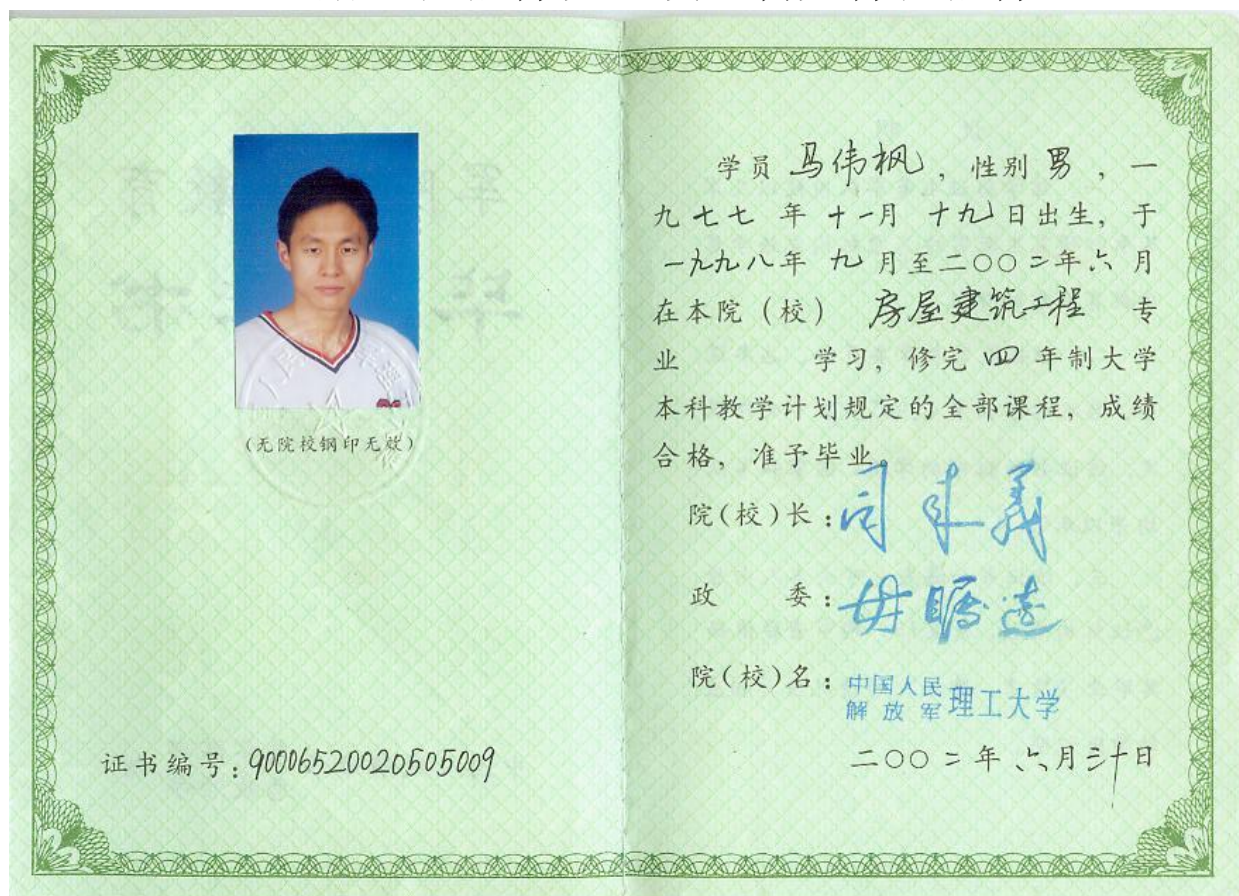 (无院校钢印无效)
证书编号:90006520020505009
学员 马伟枫 ,性别 男 ,一
九七七 年 十一月 十九日出生,于
一九九八年 九 月至二〇〇二年六月
在本院(校) 房屋建筑工程 专
业 学习,修完 四 年制大学
本科教学计划规定的全部课程,成绩
合格,准予毕业。
院(校)长:司来义
政 委:毋瞩远
院(校)名:中国人民解放军理工大学
二〇〇二年六月三十日